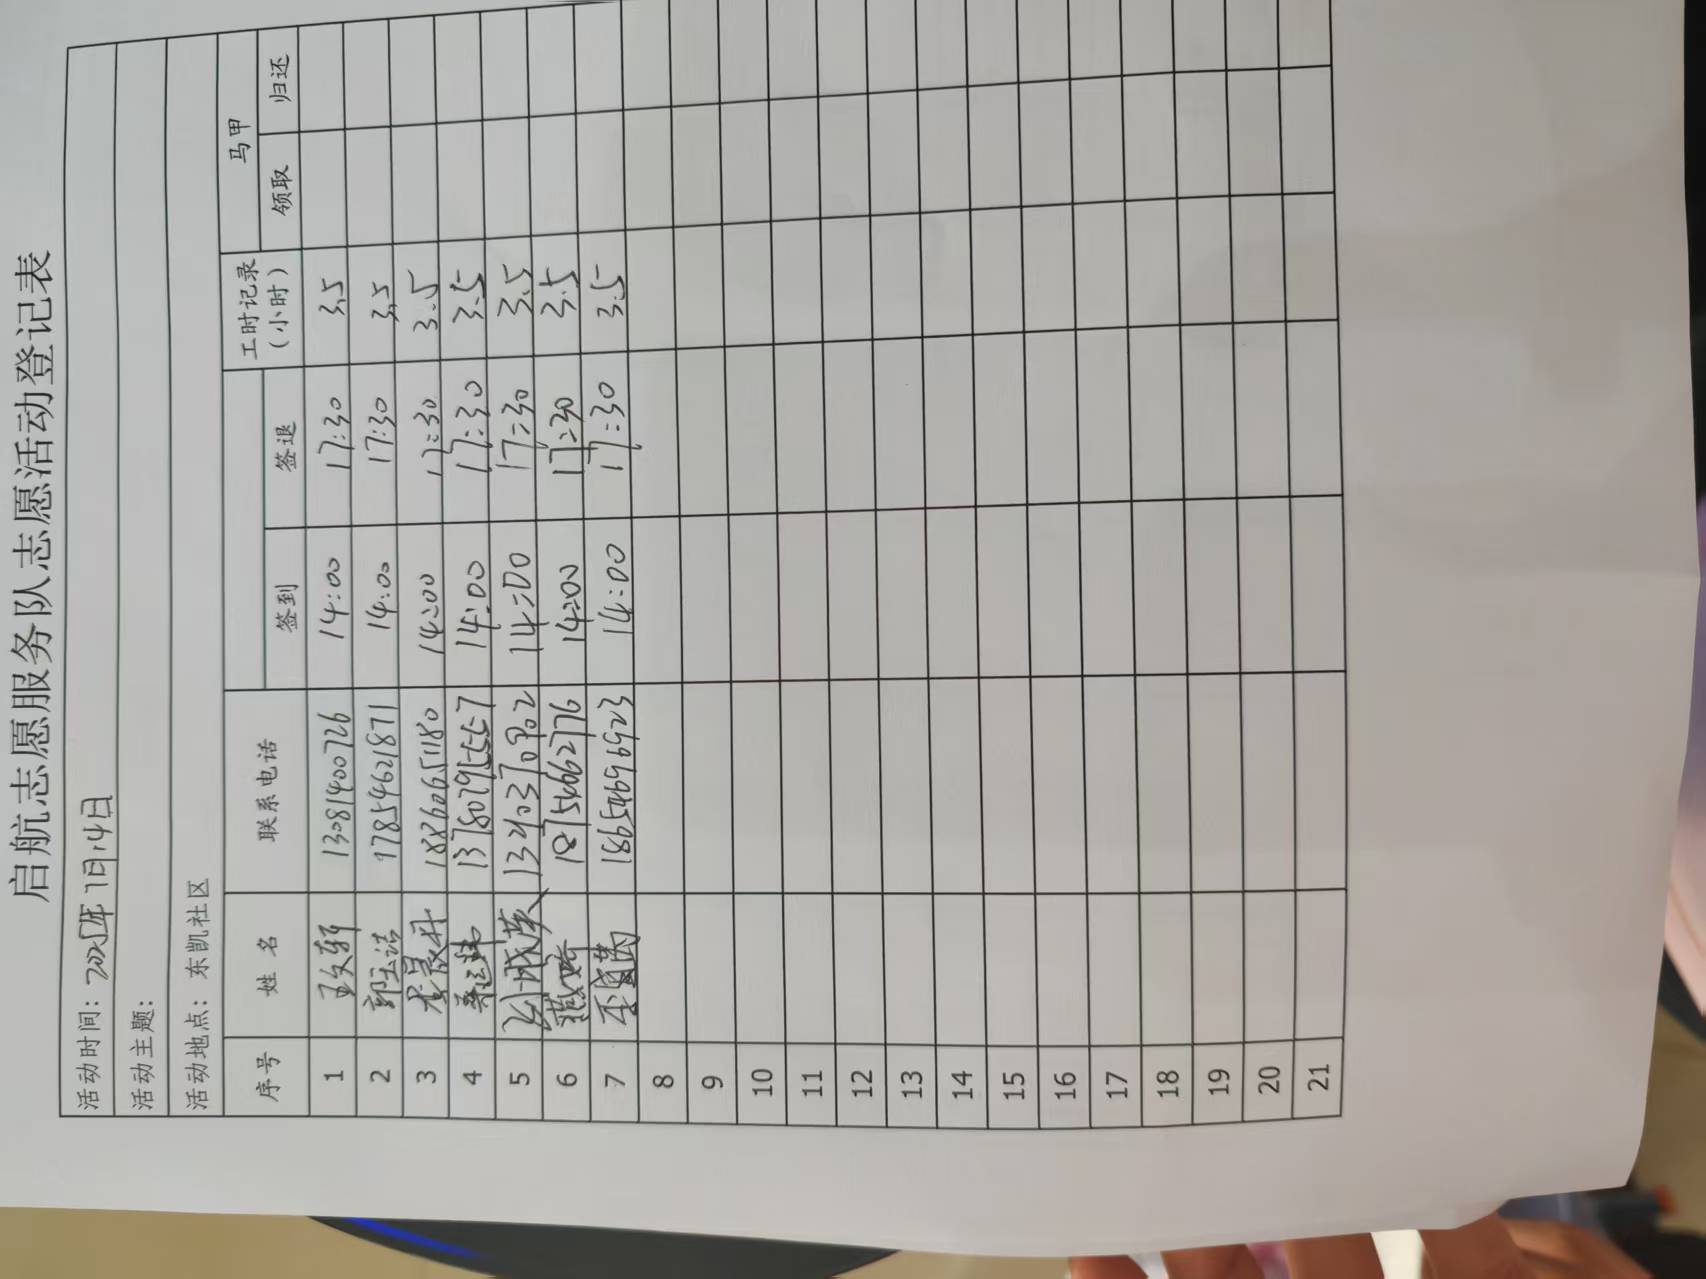 启航志愿服务队志愿活动登记表
活动时间：2025年7月14日
活动主题：
活动地点：东凯社区
序号 姓名 联系电话 签到 签退 工时记录（小时） 马甲 领取 归还
1 王文轩 13081400726 14:00 17:30 3.5
2 郭玉洁 17854621871 14:00 17:30 3.5
3 李晨升 18860651180 14:00 17:30 3.5
4 13780795557 14:00 17:30 3.5
5 刘成英 13403 14:00 17:30 3.5
6 18754662776 14:00 17:30 3.5
7 18654696923 14:00 17:30 3.5
8
9
10
11
12
13
14
15
16
17
18
19
20
21